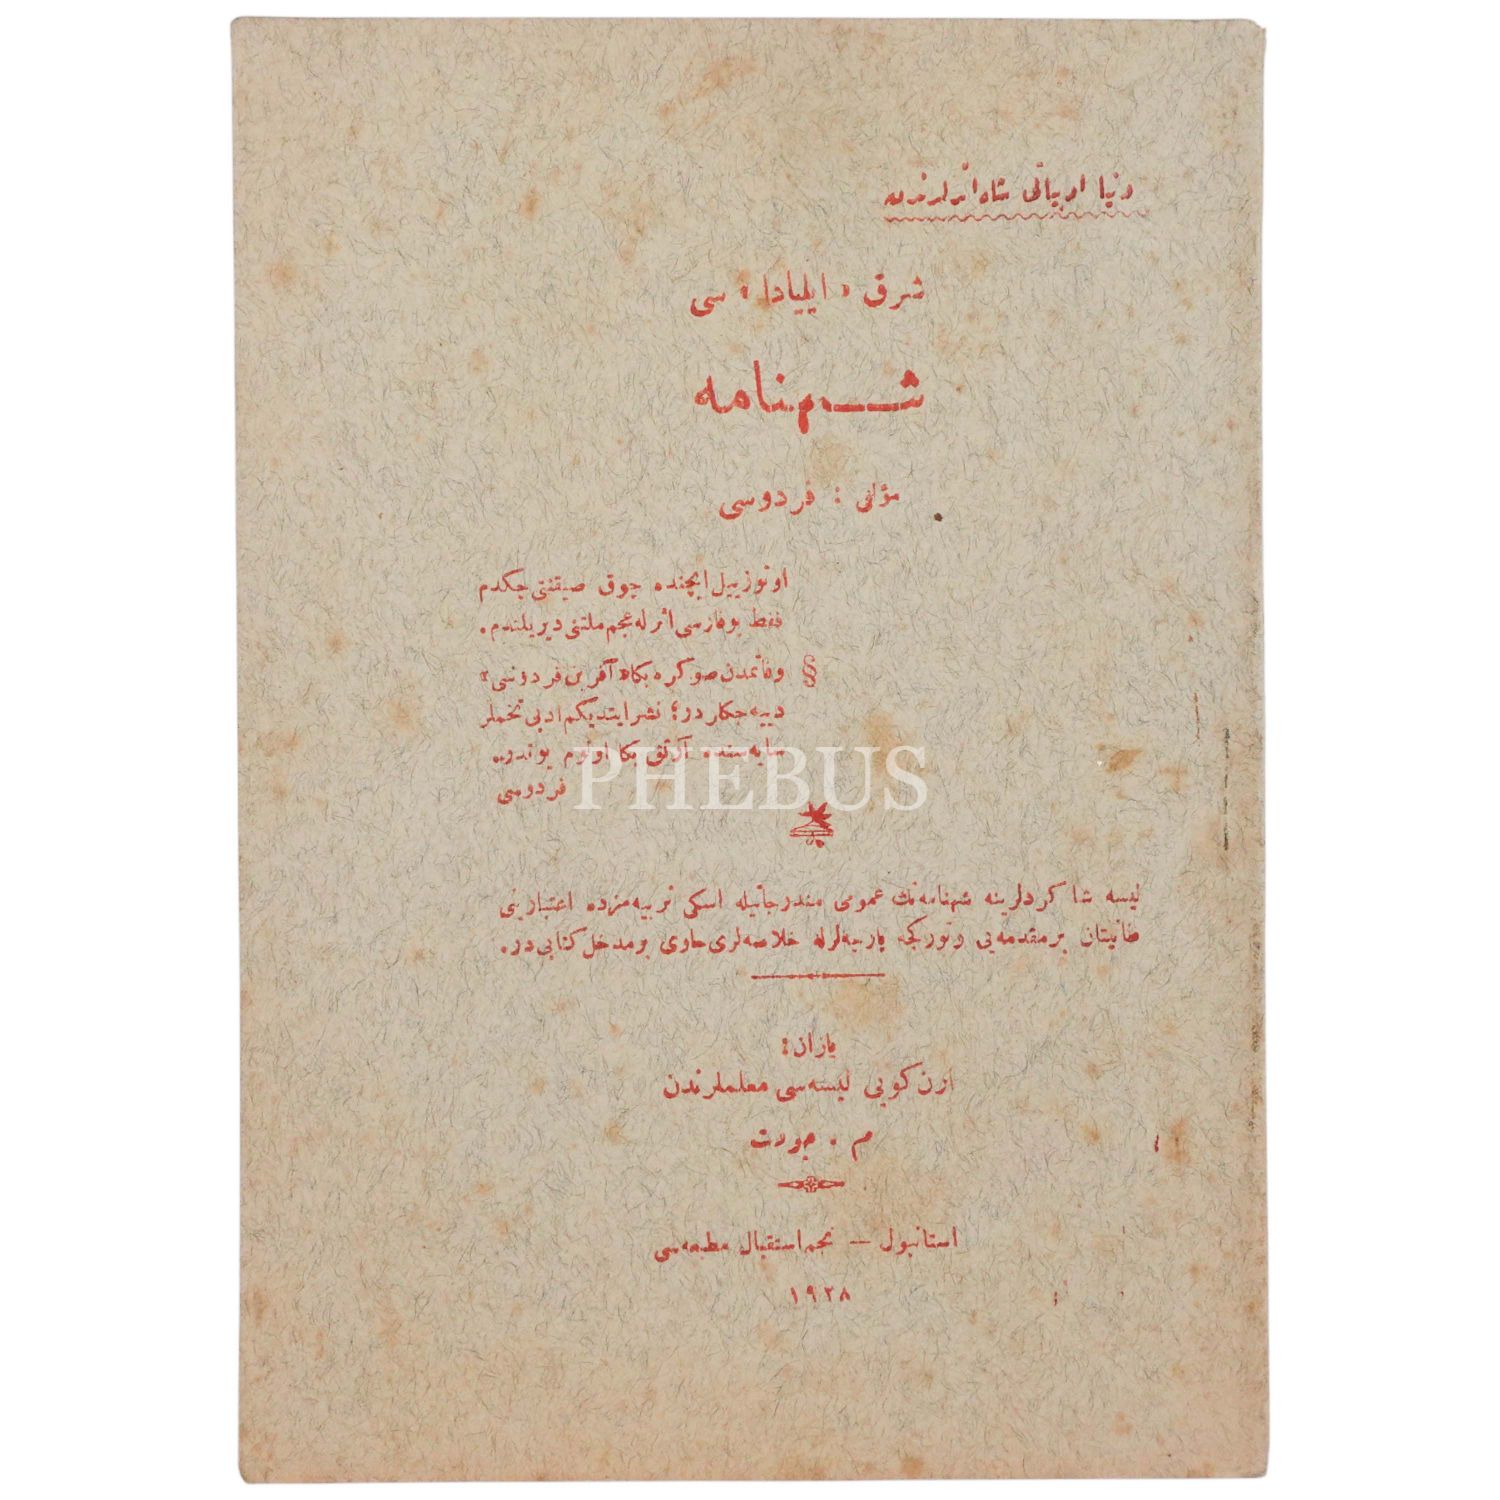 دنیا ادبیاتی شاه اثرلرندن
شرق «ایلیادا» سی
شهنامه
مؤلفی : فردوسی
اوتوز ییل ایچنده چوق صیقنتی چکدم
فقط بو فارسی اثرله عجم ملتنی دیریلتدم.
§ وفاتمدن صوکره بکا «آفرین فردوسی»
دییه جکلردر؛ نشر ایتدیکم ادبی تخملر
سایه سنده آرتق بکا اولوم یوقدر..
فردوسی
PHEBUS
لیسه شا کردلرینه شهنامه نك عمومی مندرجاتیله اسکی تربیه مزده اعتبارینی
طانیتان بر مقدمه یی و تورکجه پارچه لرله خلاصه لری حاوی بر مدخل کتابی در.
یازان :
ارن کویی لیسه سی معلملرندن
م . جودت
استانبول — نجم استقبال مطبعه سی
١٩٢٨